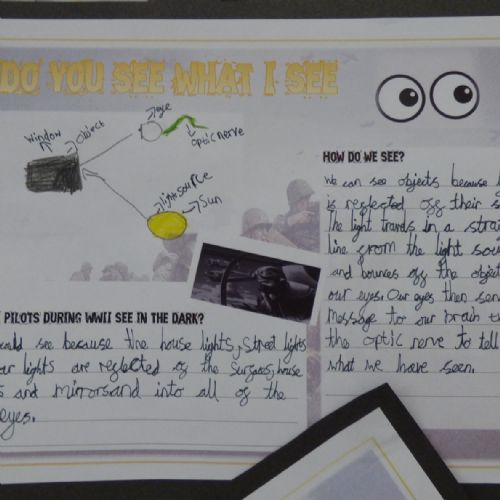 DO YOU SEE WHAT I SEE
Window
object
eye
optic nerve
light source
Sun
HOW DO WE SEE?
We can see objects because
is reglected ogg their
the light travels in a
line grom the light
and bounces ogg the
our eyes. Our eyes then
message to our brain
the optic nerve to tell
what we have seen.
PILOTS DURING WWII SEE IN THE DARK?
see because the house lights, Street lights
lights are reglected og the house
and mirrorsand into all og the
eyes.